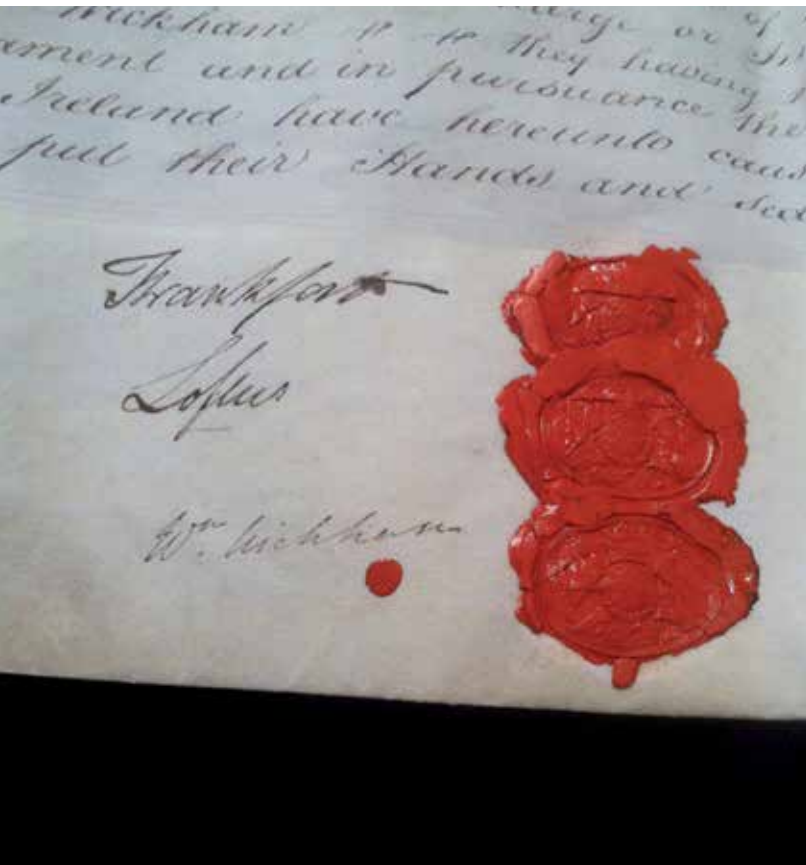 Wickham " " they having
ament and in pursuance
Ireland have hereunto caus
put their Hands and sea
Frankfort
Loftus
Wm. Wickham